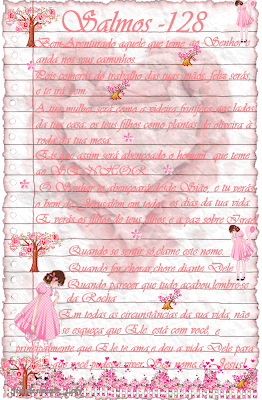 Salmos -128
Bem-Aventurado aquele que teme ao Senhor e
anda nos seus caminhos.
Pois comerás do trabalho das tuas mãos, feliz serás,
e te irá bem.
A tua mulher será como a videira frutífera aos lados
da tua casa, os teus filhos como plantas de oliveira à
roda da tua mesa.
Eis que assim será abençoado o homem que teme
ao SENHOR.
O Senhor te abençoará desde Sião, e tu verás
o bem de Jerusalém em todos os dias da tua vida.
E verás os filhos de teus filhos, e a paz sobre Israel.
Quando se sentir só clame este nome.
Quando for chorar chore diante Dele
Quando parecer que tudo acabou, lembre-se
da Rocha
Em todas as circunstâncias da sua vida, não
se esqueça que Ele está com você, e
principalmente que Ele te ama e deu a vida Dele para
que você pudesse viver. Seu nome Jesus!